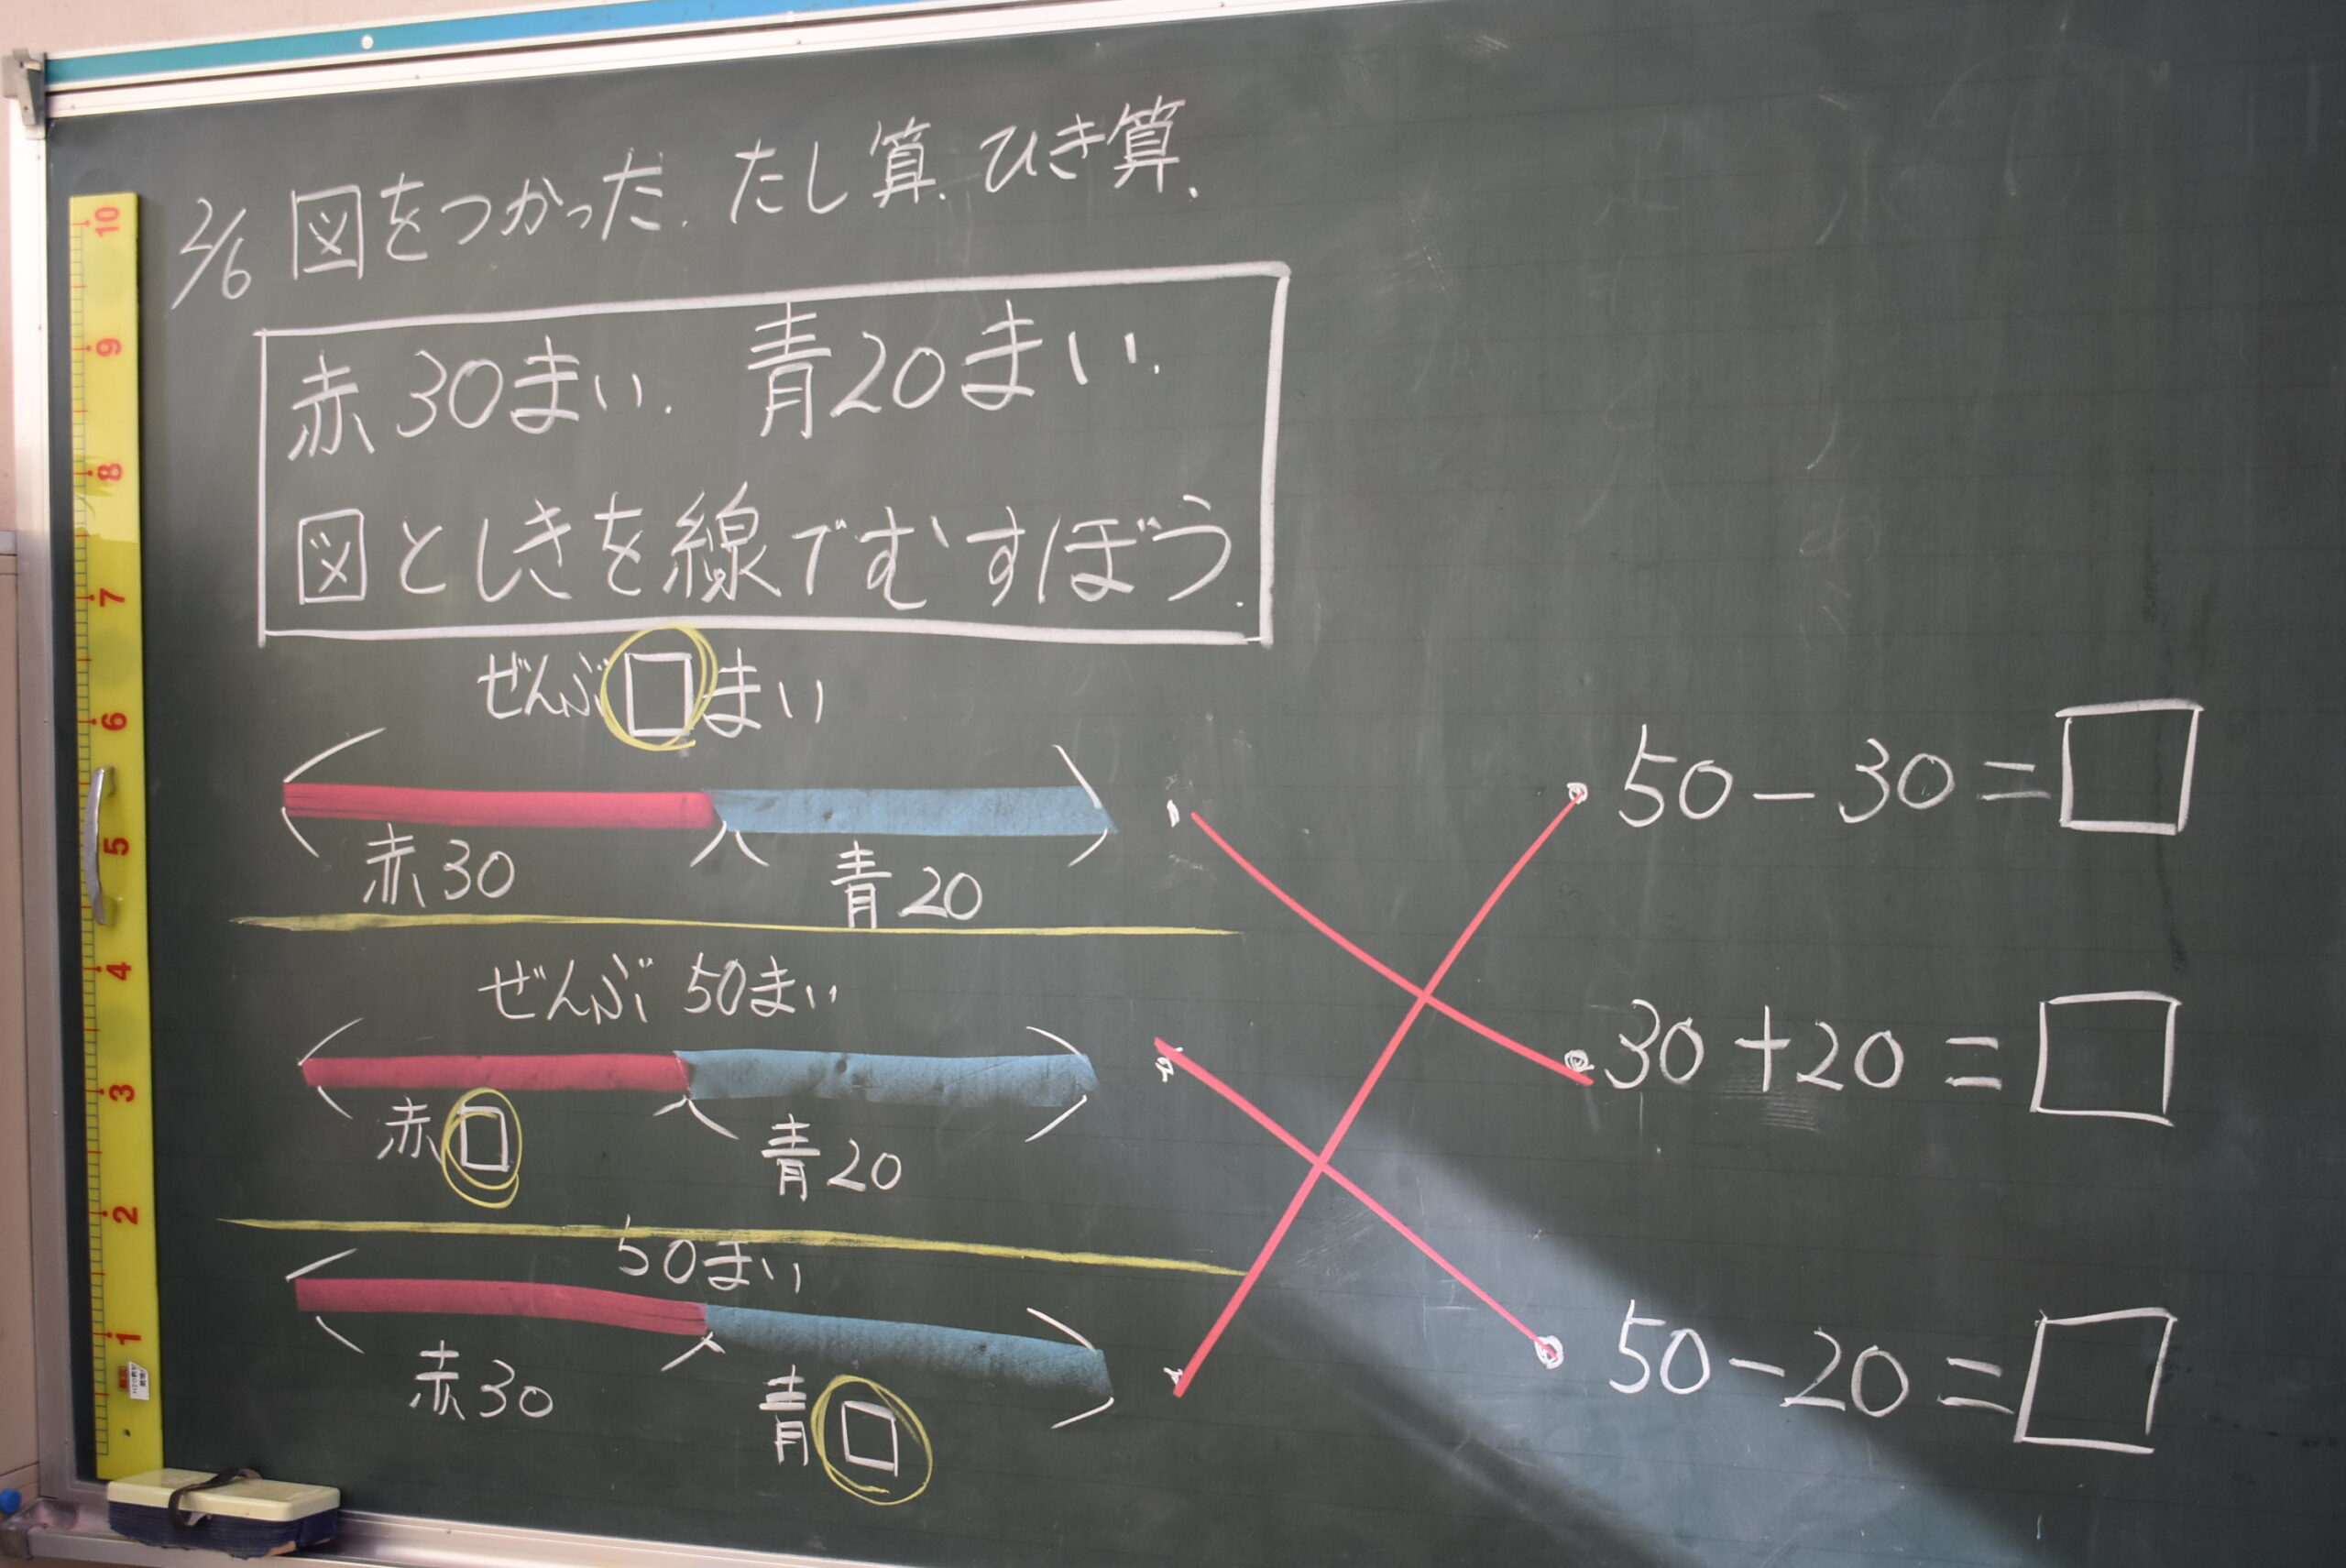 2/6 図をつかった. たし算. ひき算.
赤30まい. 青20まい.
図としきを線でむすぼう.
ぜんぶ□まい
赤30 青20
ぜんぶ 50まい
赤□ 青20
50まい
赤30 青□
50-30=□
30+20=□
50-20=□
10
9
8
7
6
5
4
3
2
1